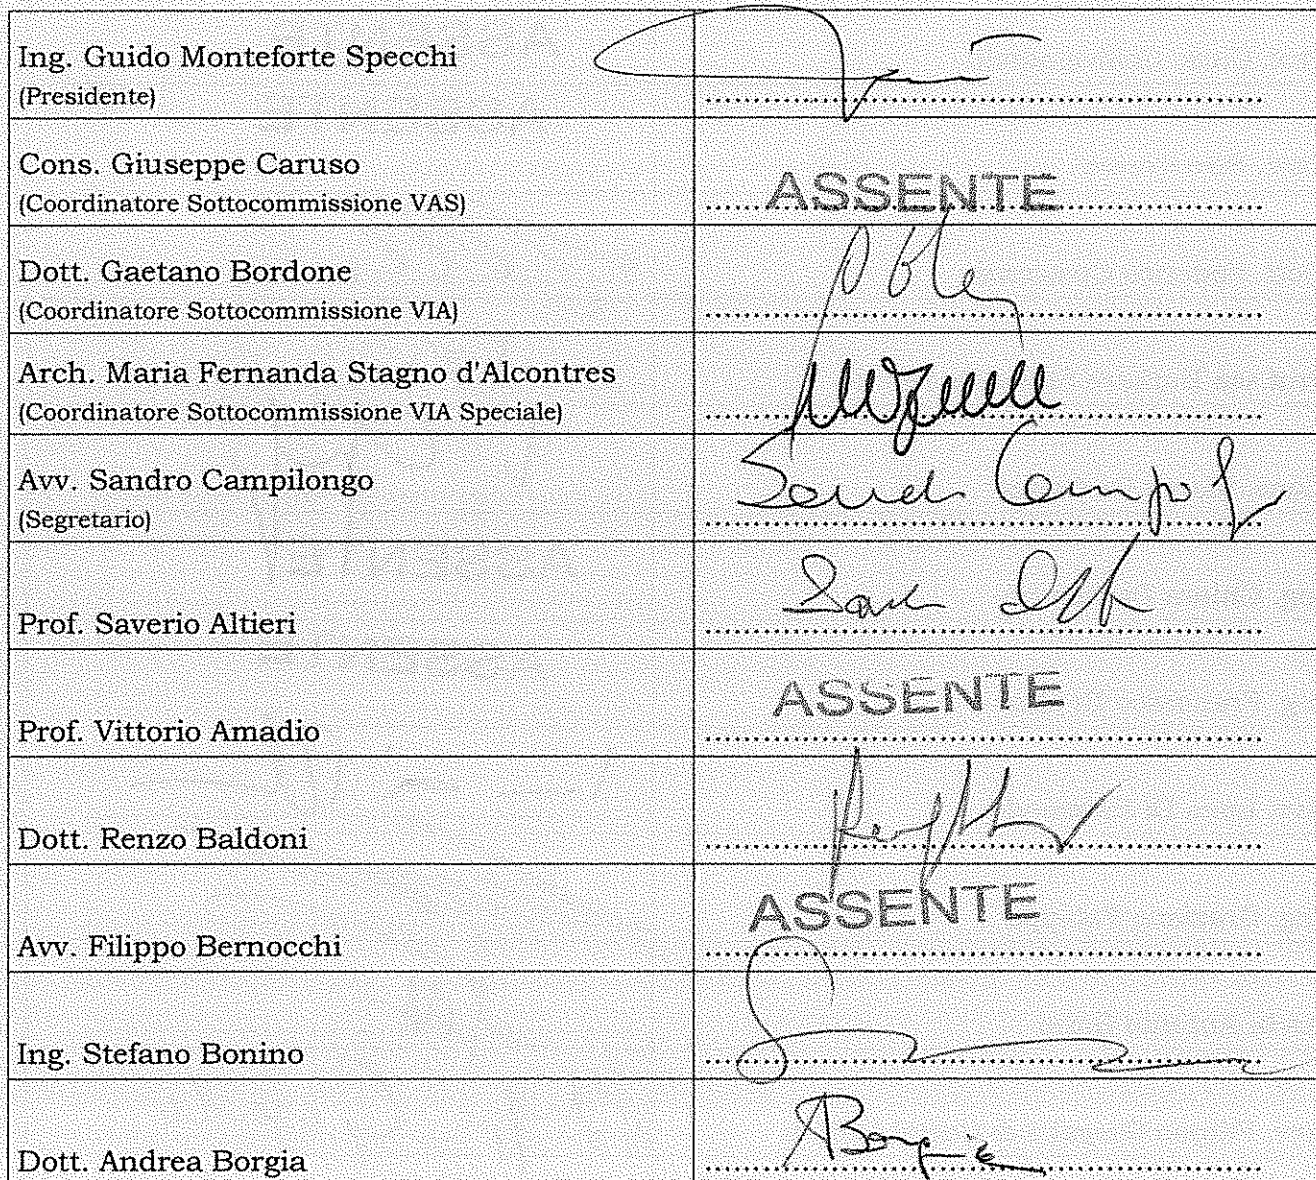 Ing. Guido Monteforte Specchi
(Presidente)
Cons. Giuseppe Caruso
(Coordinatore Sottocommissione VAS)
ASSENTE
Dott. Gaetano Bordone
(Coordinatore Sottocommissione VIA)
Arch. Maria Fernanda Stagno d'Alcontres
(Coordinatore Sottocommissione VIA Speciale)
Avv. Sandro Campilongo
(Segretario)
Prof. Saverio Altieri
Prof. Vittorio Amadio
ASSENTE
Dott. Renzo Baldoni
Avv. Filippo Bernocchi
ASSENTE
Ing. Stefano Bonino
Dott. Andrea Borgia